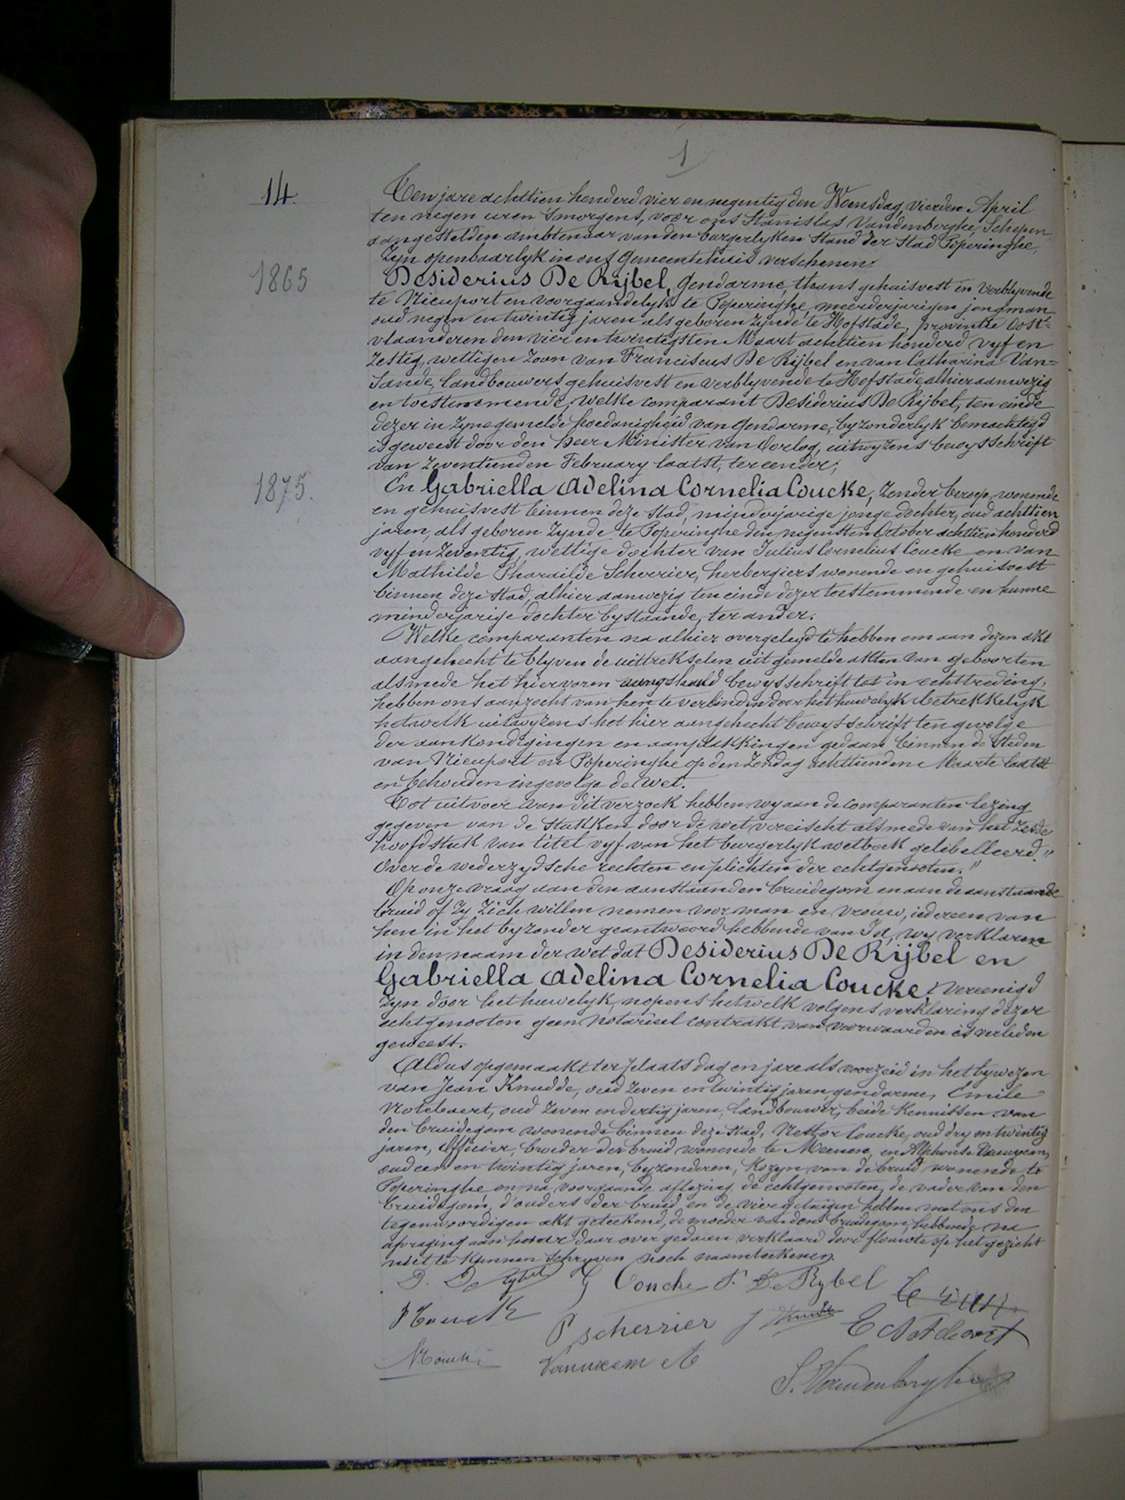 1
14.
Ten jare achttien honderd vier en negentig den Woensdag vierden April
ten negen uren smorgens, voor ons Stanislas Vandenberghe, Schepen
aangestelden ambtenaar van den burgerlyken Stand der Stad Poperinghe,
Zyn openbaarlyk in ons Gemeentehuis verschenen:
1865
Desiderius De Rijbel, Gendarme, thans gehuisvest en verblyvende
te Nieuport en voorgaandelyk te Poperinghe, meerderjarigen jongman
oud negen en twintig jaren als geboren zynde te Hofstade, provintie Oost-
vlaanderen den vier en twintigsten Maart achttien honderd vyf en
Zestig, wettigen Zoon van Franciscus De Rijbel en van Catharina Van-
Sande, landbouwers gehuisvest en verblyvende te Hofstade alhier aanwezig
en toestemmende, welke comparant Desiderius De Rijbel, ten einde
dezer in zyne gemelde hoedanigheid van Gendarme, byzonderlyk bemachtigd
is geweest door den heer Minister van Oorlog, uitwyzens bewysschrift
van Zeventienden February laatst, ter eender;
1875.
En Gabriella Adelina Cornelia Coucke, Zonder beroep, wonende
en gehuisvest binnen deze stad, minderjarige jonge dochter, oud achttien
jaren, als geboren Zynde te Poperinghe den negensten October achttien honderd
vyf en Zeventig, wettige dochter van Julius Cornelius Coucke en van
Mathilde Pharaïlde Scherrier, herbergiers wonende en gehuisvest
binnen deze stad, alhier aanwezig ten einde dezer toestemmende en hunne
minderjarige dochter bystaande, ter ander.
Welke comparanten na alhier overgelegd te hebben om aan dezen akt
aangehecht te blyven de uittrekselen uit gemelde akten van geboorten
alsmede het hiervoren bewysschrift tot in echttreding,
hebben ons aanzocht van hen te verbinden door het huwelyk betrekkelyk
hetwelk uitwyzens het hier aangehecht bewysschrift ten gevolge
der aankondigingen en aanplakkingen gedaan binnen de Steden
van Nieuport en Poperinghe op den Zondag achttienden Maarte laatst
en behouden ingevolge de wet.
Tot uitvoer van dit verzoek hebben wy aan de comparanten lezing
gegeven van de Stukken door de wet vereischt alsmede van het Zesde
hoofdstuk van titel vyf van het burgerlyk wetboek gelibelleerd "
Over de wederzydsche rechten en plichten der echtgenooten."
Op onze vraag aan den aanstaanden bruidegom en aan de aanstaande
bruid of Zy Zich willen nemen voor man en vrouw, iedereen van
hen in het byzonder geantwoord hebbende van Ja, wy verklaren
in den naam der wet dat Desiderius De Rijbel en
Gabriella Adelina Cornelia Coucke, vereenigd
Zyn door het huwelyk, nopens hetwelk volgens verklaring dezer
echtgenooten geen notarieel contrakt van voorwaarden is verleden
geweest.
Aldus opgemaakt ter plaats dag en jare als voorzeid in het bywezen
van Jean Knudde, oud Zeven en twintig jaren gendarme, Emile
Notebaert, oud Zeven en dertig jaren, landbouwer, beide Kennissen van
den bruidegom wonende binnen deze stad, Nestor Coucke, oud dry en twintig
jaren, Officier, broeder der bruid wonende te Meenen, en Alphonse Vanuxem,
oud een en twintig jaren, byzonderen, Kozyn van de bruid wonende te
Poperinghe en na voorgaande aflezing de echtgenooten, de vader van den
bruidegom, d'ouders der bruid en de vier getuigen hebben met ons den
tegenwoordigen akt geteekend, de moeder van den bruidegom hebbende na
afvraging aan haar daar over gedaan verklaard door flauwte op het gezicht
niet te kunnen Schryven noch naamteekenen.
D. De rybel G Coucke F. De Rybel
Coucke
P scherrier J Knudde E Notebaert
N Coucke Vanuxem A
S. Vandenberghe